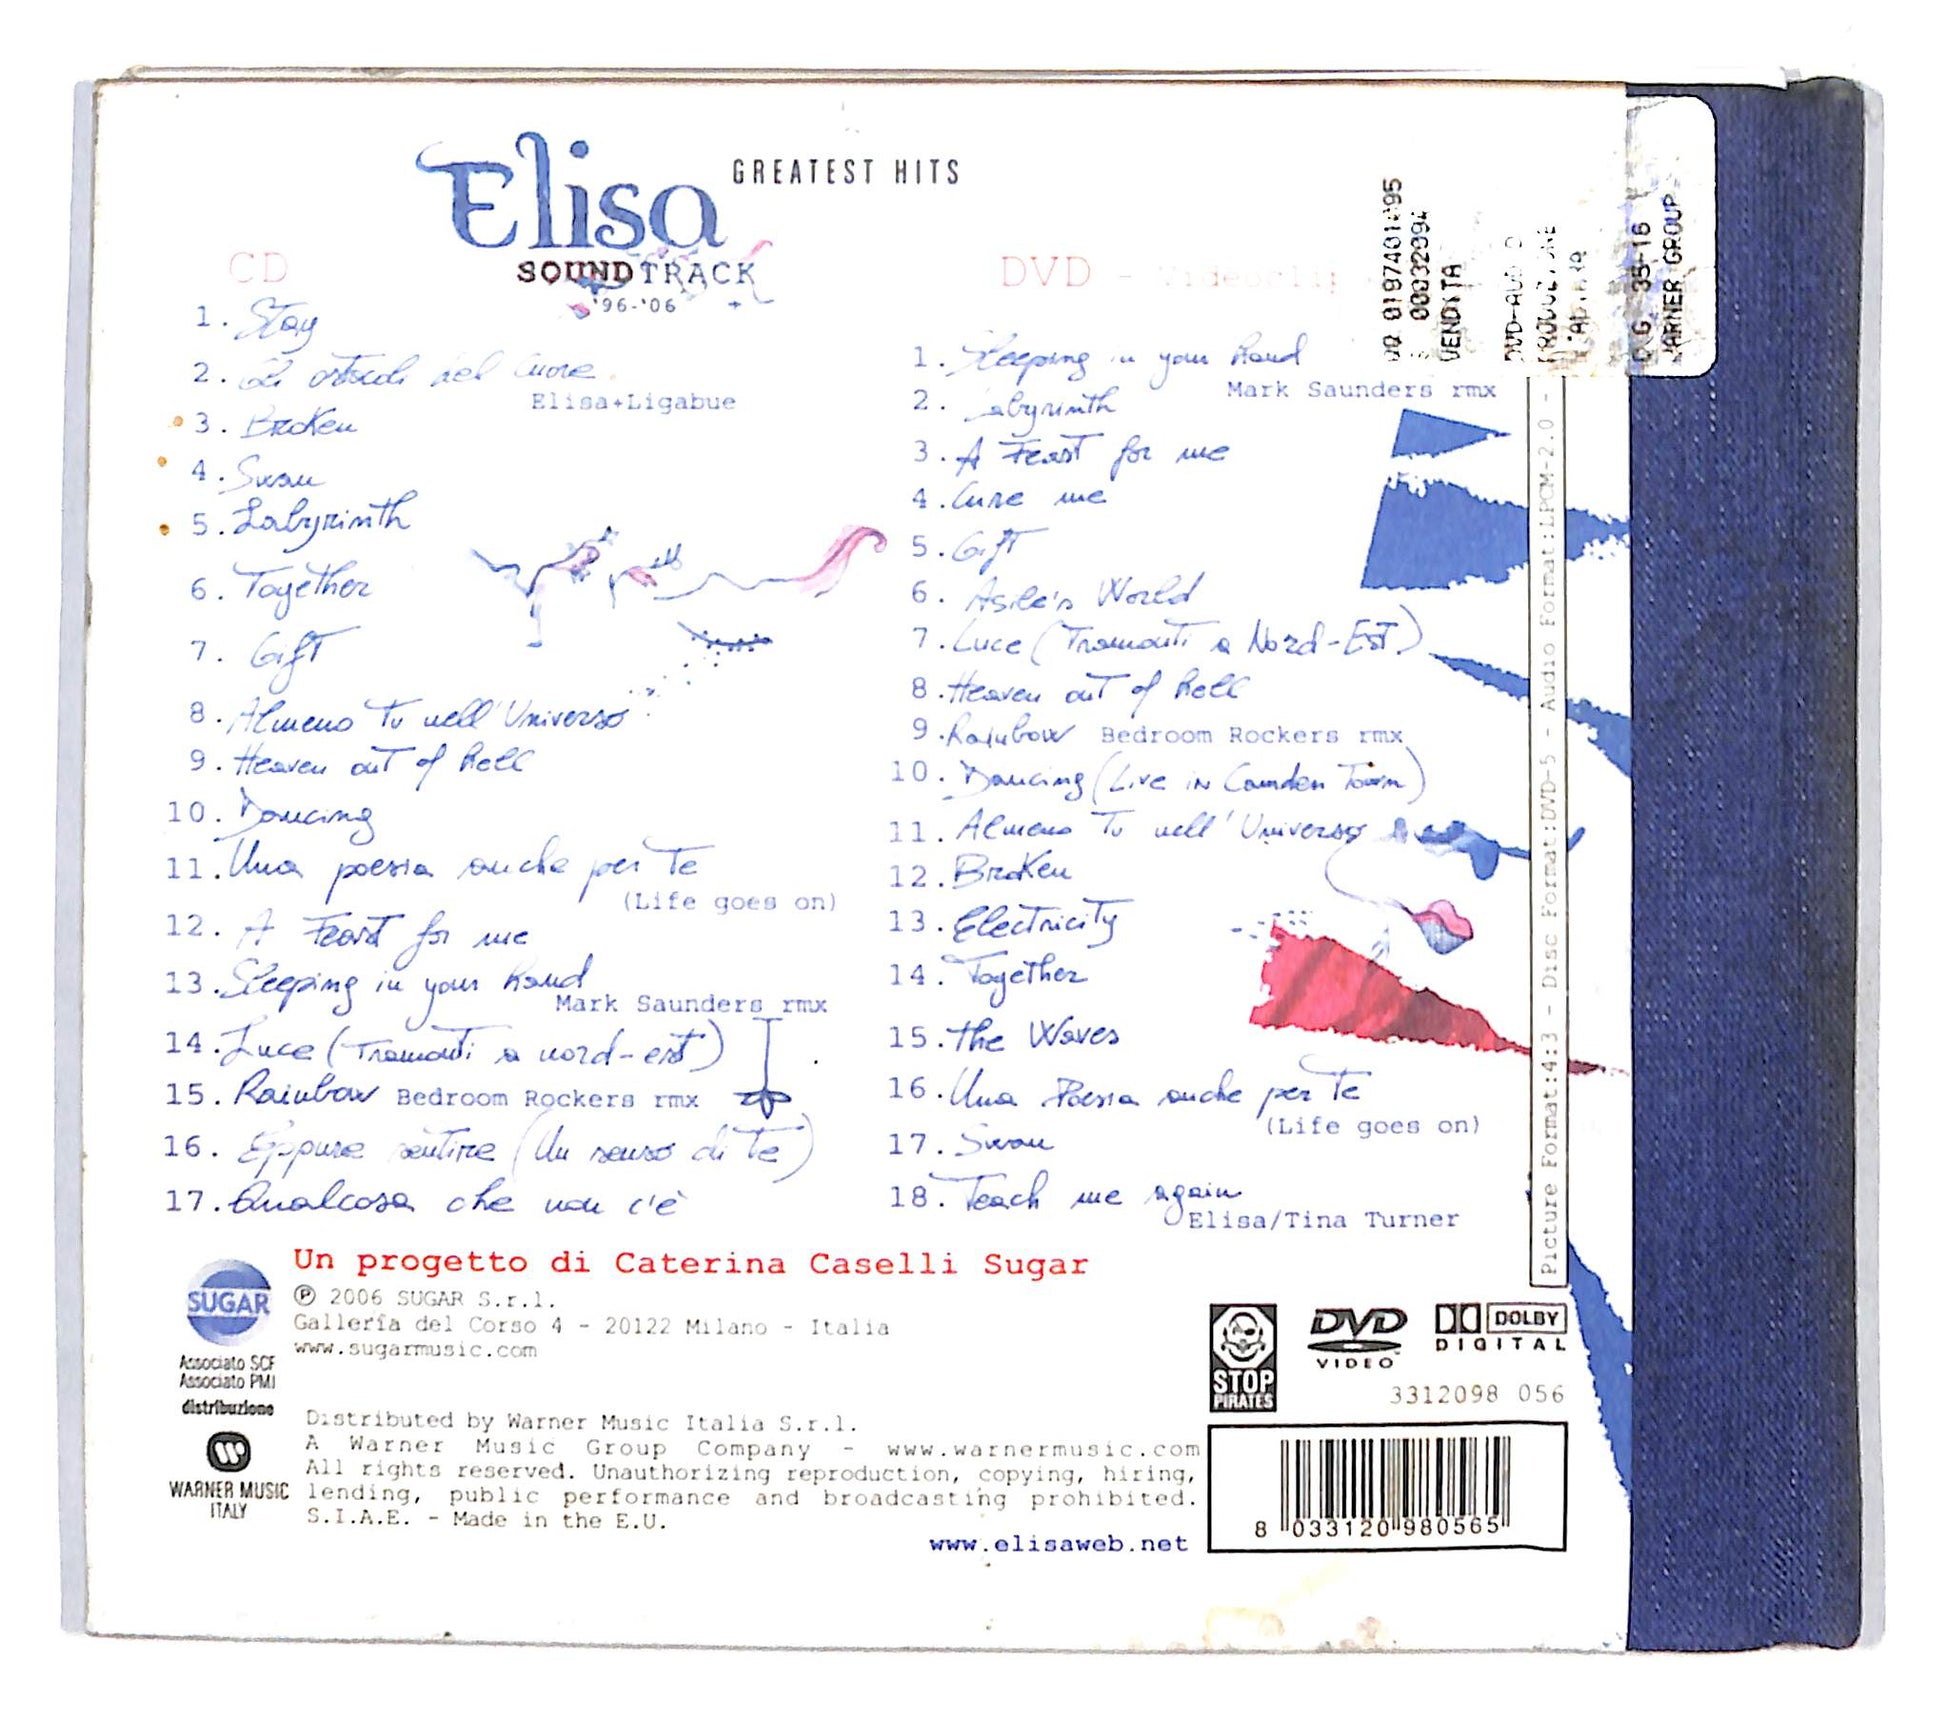 Elisa GREATEST HITS
SOUNDTRACK
'96-'06
CD
1. Stay
2. Gli ostacoli del Cuore
Elisa+Ligabue
3. Broken
4. Swan
5. Labyrinth
6. Together
7. Gift
8. Almeno Tu nell'Universo
9. Heaven out of Hell
10. Dancing
11. Una poesia anche per Te
(Life goes on)
12. A Feast for me
13. Sleeping in your Hand
Mark Saunders rmx
14. Luce (Tramonti a nord-est)
15. Rainbow Bedroom Rockers rmx
16. Eppure sentire (Un senso di Te)
17. Qualcosa che non c'è
DVD - Videoclip
1. Sleeping in your Hand
Mark Saunders rmx
2. Labyrinth
3. A Feast for me
4. Cure me
5. Gift
6. Asile's World
7. Luce (Tramonti a Nord-Est)
8. Heaven out of Hell
9. Rainbow Bedroom Rockers rmx
10. Dancing (Live in Camden Town)
11. Almeno Tu nell'Universo
12. Broken
13. Electricity
14. Together
15. The Waves
16. Una Poesia anche per Te
(Life goes on)
17. Swan
18. Teach me again
Elisa/Tina Turner
00032094
VENDITA
WARNER GROUP
Picture Format:4:3 - Disc Format:DVD-5 - Audio Format:LPCM-2.0 -
Un progetto di Caterina Caselli Sugar
SUGAR
℗ 2006 SUGAR S.r.l.
Galleria del Corso 4 - 20122 Milano - Italia
www.sugarmusic.com
Associato SCF
Associato PMI
distribuzione
WARNER MUSIC
ITALY
Distributed by Warner Music Italia S.r.l.
A Warner Music Group Company - www.warnermusic.com
All rights reserved. Unauthorizing reproduction, copying, hiring,
lending, public performance and broadcasting prohibited.
S.I.A.E. - Made in the E.U.
www.elisaweb.net
STOP
PIRATES
DVD
VIDEO
DOLBY
DIGITAL
3312098 056
8 033120 980565